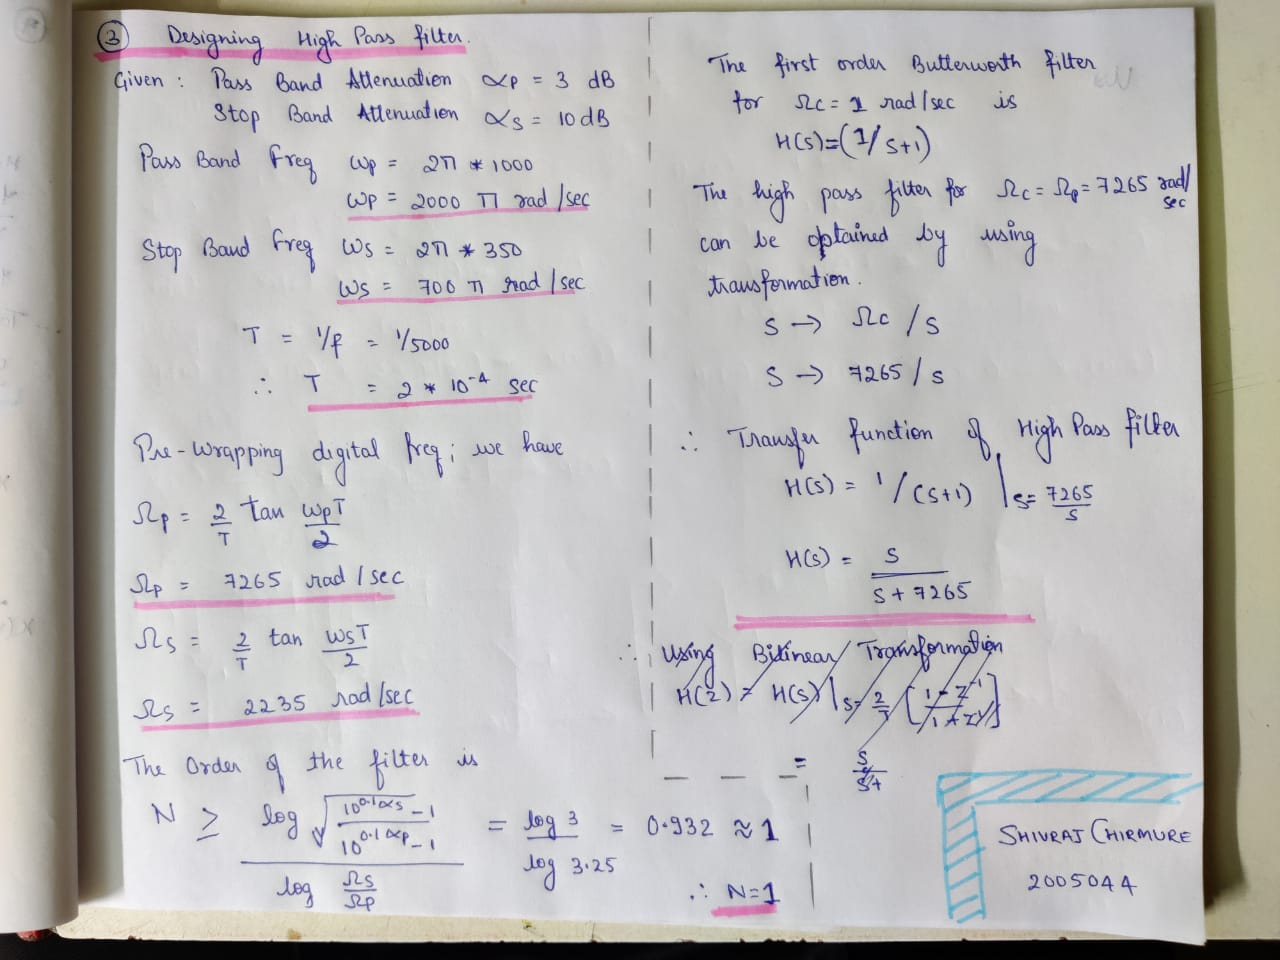 ③ Designing High Pass filter.
Given : Pass Band Attenuation αp = 3 dB
Stop Band Attenuation αs = 10 dB
Pass Band freq ωp = 2π * 1000
ωp = 2000 π rad/sec
Stop Band freq ωs = 2π * 350
ωs = 700 π rad/sec
T = 1/f = 1/5000
∴ T = 2 * 10⁻⁴ sec
Pre-Wrapping digital freq; we have
Ωp = 2/T tan ωpT/2
Ωp = 7265 rad/sec
Ωs = 2/T tan ωsT/2
Ωs = 2235 rad/sec
The Order of the filter is
N ≥ log √((10^0.1αs - 1)/(10^0.1αp - 1)) / log (Ωs/Ωp) = log 3 / log 3.25 = 0.932 ≈ 1
∴ N=1
The first order Butterworth filter
for Ωc = 1 rad/sec is
H(s)=(1/s+1)
The high pass filter for Ωc = Ωp = 7265 rad/sec
can be optained by using
transformation.
S → Ωc / s
S → 7265 / s
∴ Transfer function of High Pass filter
H(s) = 1/(s+1) | s = 7265/s
H(s) = s / (s + 7265)
∴ Using Bilinear Transformation
H(z) = H(s) | s = 2/T [1 - z⁻¹ / 1 + z⁻¹]
= s / s+
SHIVRAJ CHIRMURE
2005044